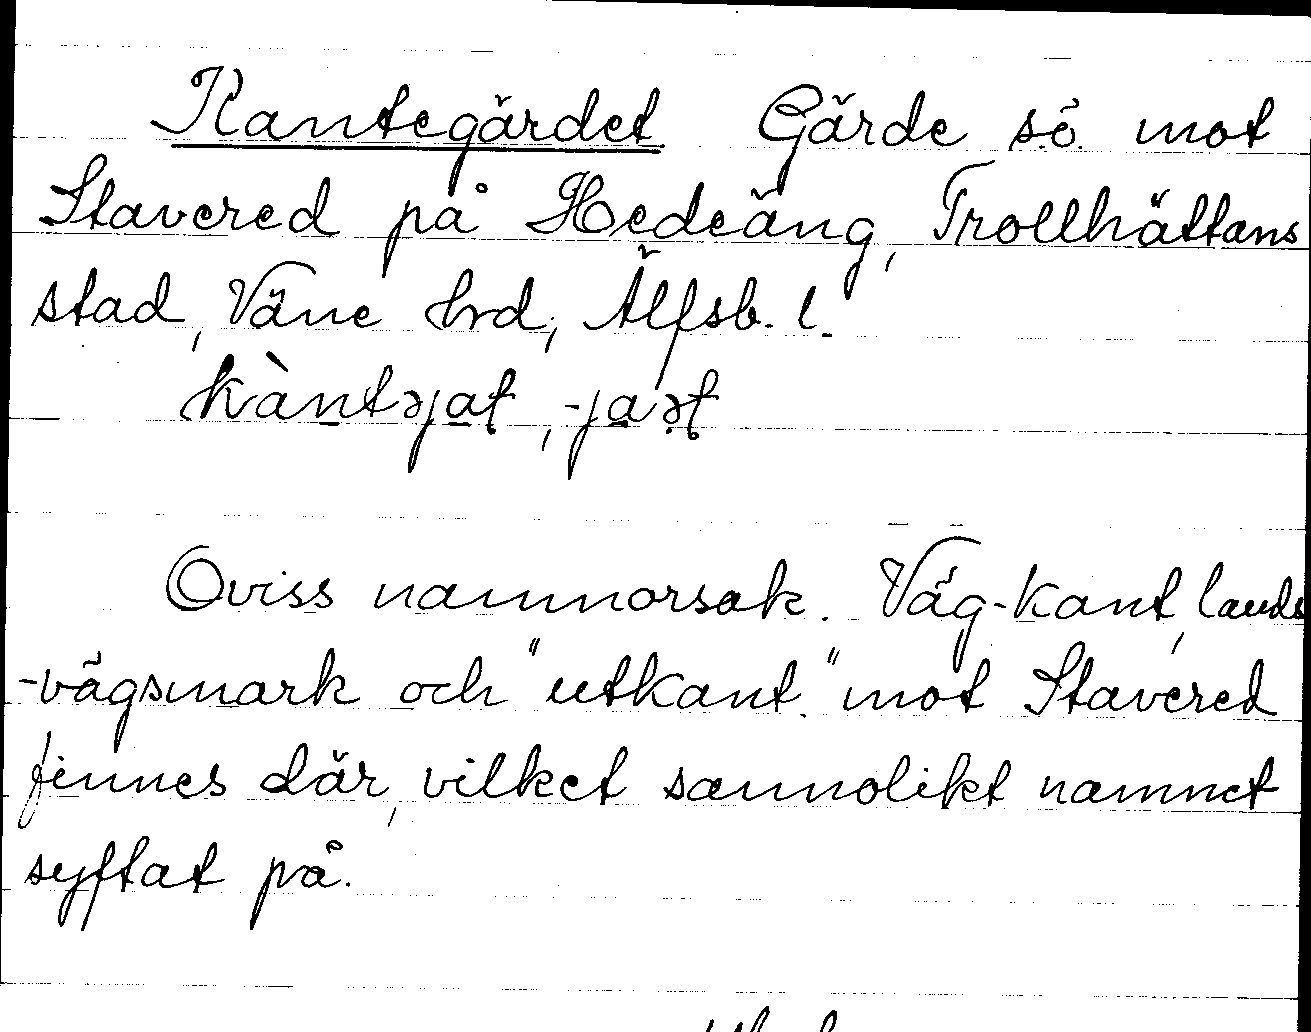 Kantegärdet Gärde s.ö. mot
Stavered på Hedeäng, Trollhättans
stad, Väne hrd, Älfsb. l.
kàntəjat, -jaət
Oviss namnorsak. Väg-kant, lands
-vägsmark och "utkant" mot Stavered
finnes där, vilket sannolikt namnet
syftat på.